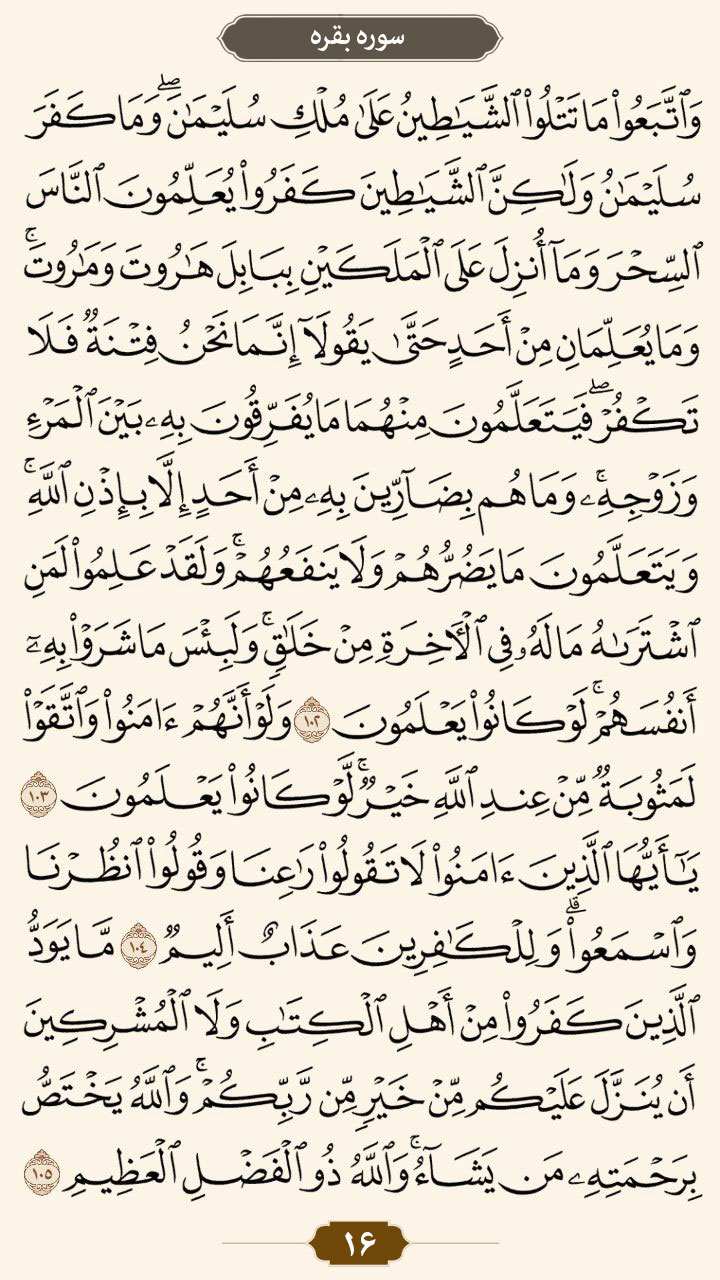 سوره بقره
وَٱتَّبَعُوا۟ مَا تَتْلُوا۟ ٱلشَّيَـٰطِينُ عَلَىٰ مُلْكِ سُلَيْمَـٰنَ ۖ وَمَا كَفَرَ
سُلَيْمَـٰنُ وَلَـٰكِنَّ ٱلشَّيَـٰطِينَ كَفَرُوا۟ يُعَلِّمُونَ ٱلنَّاسَ
ٱلسِّحْرَ وَمَآ أُنزِلَ عَلَى ٱلْمَلَكَيْنِ بِبَابِلَ هَـٰرُوتَ وَمَـٰرُوتَ ۚ
وَمَا يُعَلِّمَانِ مِنْ أَحَدٍ حَتَّىٰ يَقُولَآ إِنَّمَا نَحْنُ فِتْنَةٌ فَلَا
تَكْفُرْ ۖ فَيَتَعَلَّمُونَ مِنْهُمَا مَا يُفَرِّقُونَ بِهِۦ بَيْنَ ٱلْمَرْءِ
وَزَوْجِهِۦ ۚ وَمَا هُم بِضَآرِّينَ بِهِۦ مِنْ أَحَدٍ إِلَّا بِإِذْنِ ٱللَّهِ ۚ
وَيَتَعَلَّمُونَ مَا يَضُرُّهُمْ وَلَا يَنفَعُهُمْ ۚ وَلَقَدْ عَلِمُوا۟ لَمَنِ
ٱشْتَرَىٰهُ مَا لَهُۥ فِى ٱلْـَٔاخِرَةِ مِنْ خَلَـٰقٍ ۚ وَلَبِئْسَ مَا شَرَوْا۟ بِهِۦٓ
أَنفُسَهُمْ ۚ لَوْ كَانُوا۟ يَعْلَمُونَ ١٠٢ وَلَوْ أَنَّهُمْ ءَامَنُوا۟ وَٱتَّقَوْا۟
لَمَثُوبَةٌ مِّنْ عِندِ ٱللَّهِ خَيْرٌ ۚ لَّوْ كَانُوا۟ يَعْلَمُونَ ١٠٣
يَـٰٓأَيُّهَا ٱلَّذِينَ ءَامَنُوا۟ لَا تَقُولُوا۟ رَٰعِنَا وَقُولُوا۟ ٱنظُرْنَا
وَٱسْمَعُوا۟ ۗ وَلِلْكَـٰفِرِينَ عَذَابٌ أَلِيمٌ ١٠٤ مَّا يَوَدُّ
ٱلَّذِينَ كَفَرُوا۟ مِنْ أَهْلِ ٱلْكِتَـٰبِ وَلَا ٱلْمُشْرِكِينَ
أَن يُنَزَّلَ عَلَيْكُم مِّنْ خَيْرٍ مِّن رَّبِّكُمْ ۚ وَٱللَّهُ يَخْتَصُّ
بِرَحْمَتِهِۦ مَن يَشَآءُ ۚ وَٱللَّهُ ذُو ٱلْفَضْلِ ٱلْعَظِيمِ ١٠٥
۱۶